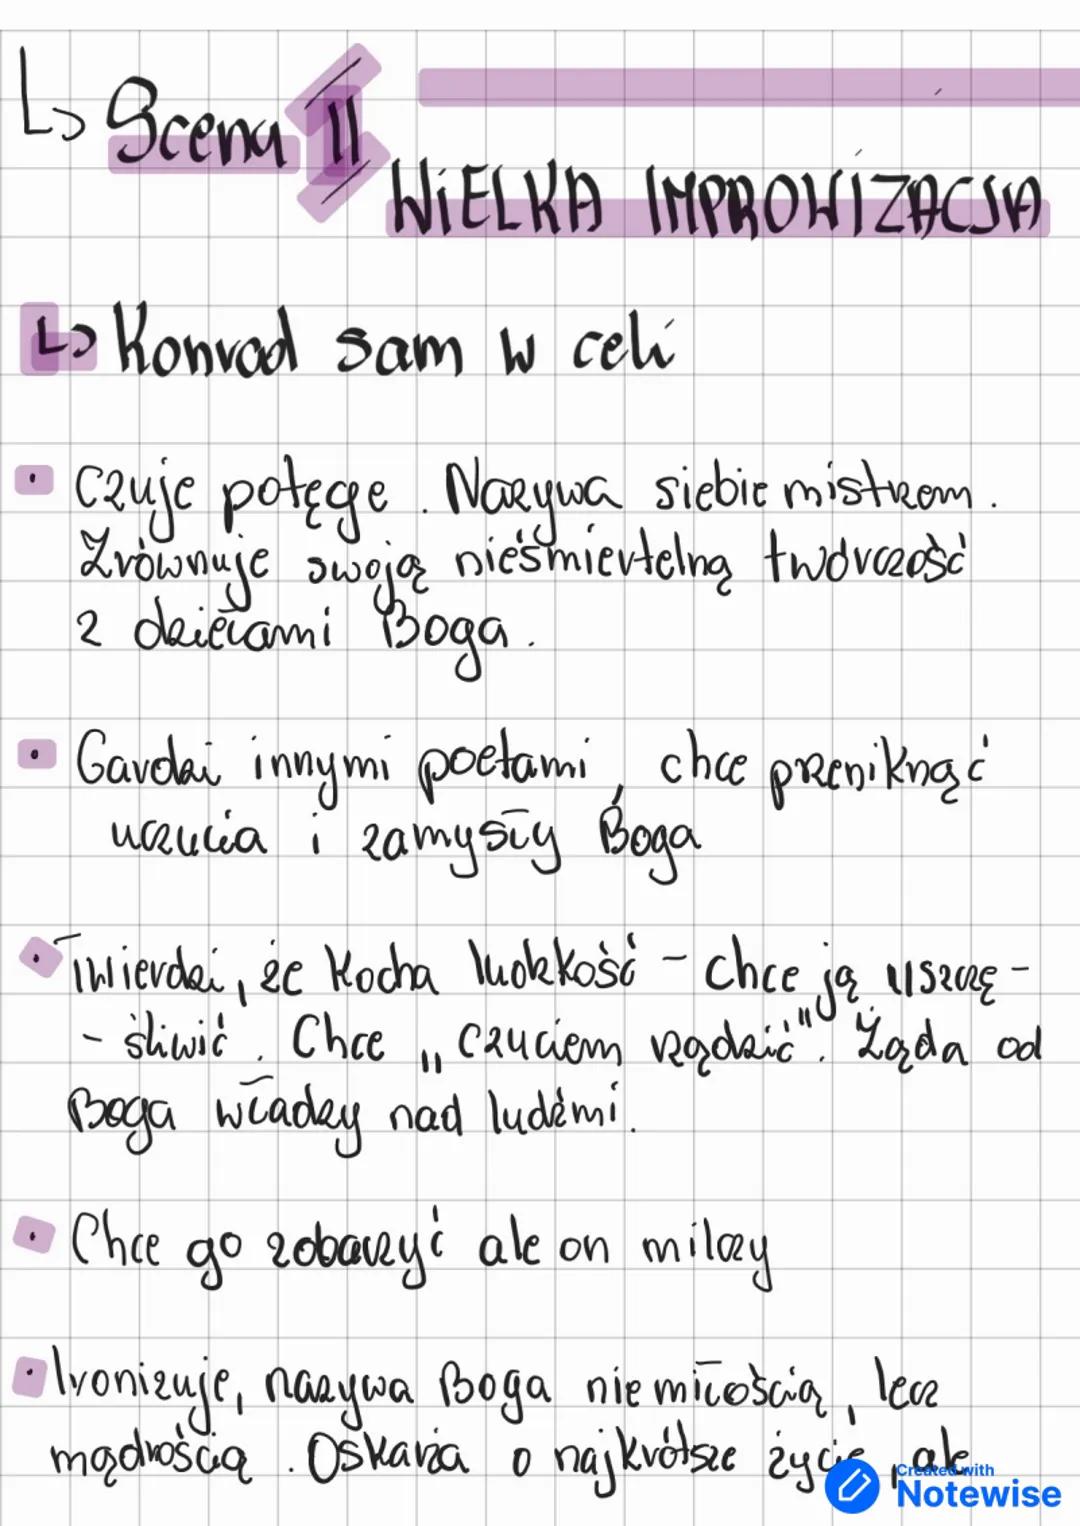 ↳ Scena II
WIELKA IMPROWIZACJA
↳ Konrad sam w celi
• Czuje potęgę. Nazywa siebie mistrzem.
Zrównuje swoją nieśmiertelną twórczość
z dziełami Boga.
• Gardzi innymi poetami, chce przeniknąć
uczucia i zamysły Boga
• Twierdzi, że kocha ludzkość - Chce ją uszczę-
- śliwić. Chce „czuciem rządzić". Żąda od
Boga władzy nad ludźmi.
• Chce go zobaczyć ale on milczy
• Ironizuje, nazywa Boga nie miłością, lecz
mądrością. Oskarża o najkrótsze życie, ale
Created with
Notewise